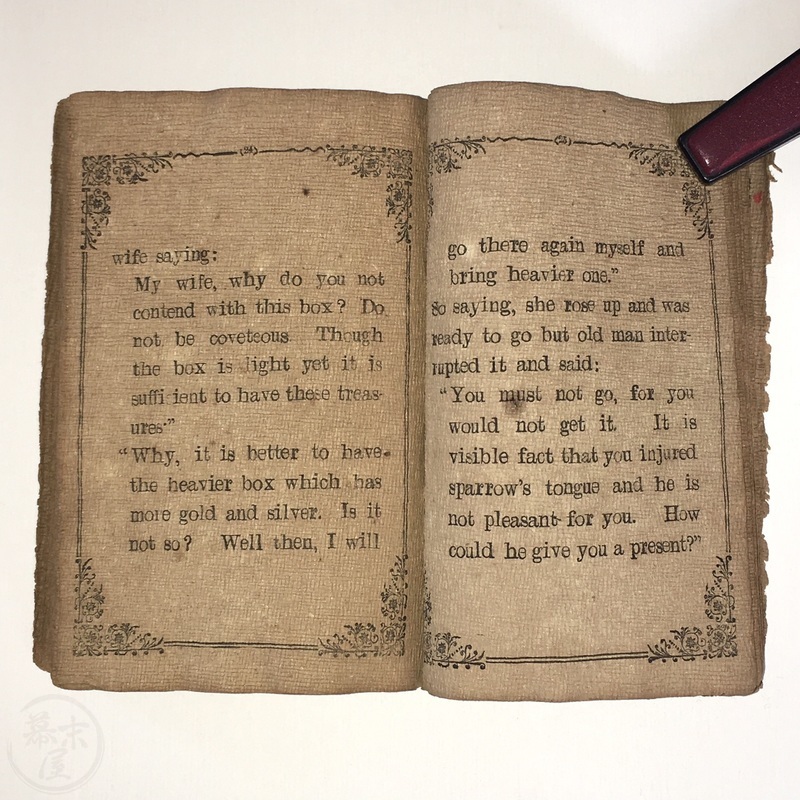 (24)
wife saying:
My wife, why do you not
contend with this box? Do
not be coveteous Though
the box is light yet it is
suffi ient to have these treas-
ures·”
“Why, it is better to have
the heavier box which has
more gold and silver. Is it
not so? Well then, I will
(25)
go there again myself and
bring heavier one.”
So saying, she rose up and was
ready to go but old man inter-
rupted it and said:
“You must not go, for you
would not get it. It is
visible fact that you injured
sparrow's tongue and he is
not pleasant for you. How
could he give you a present?”
幕末
屋